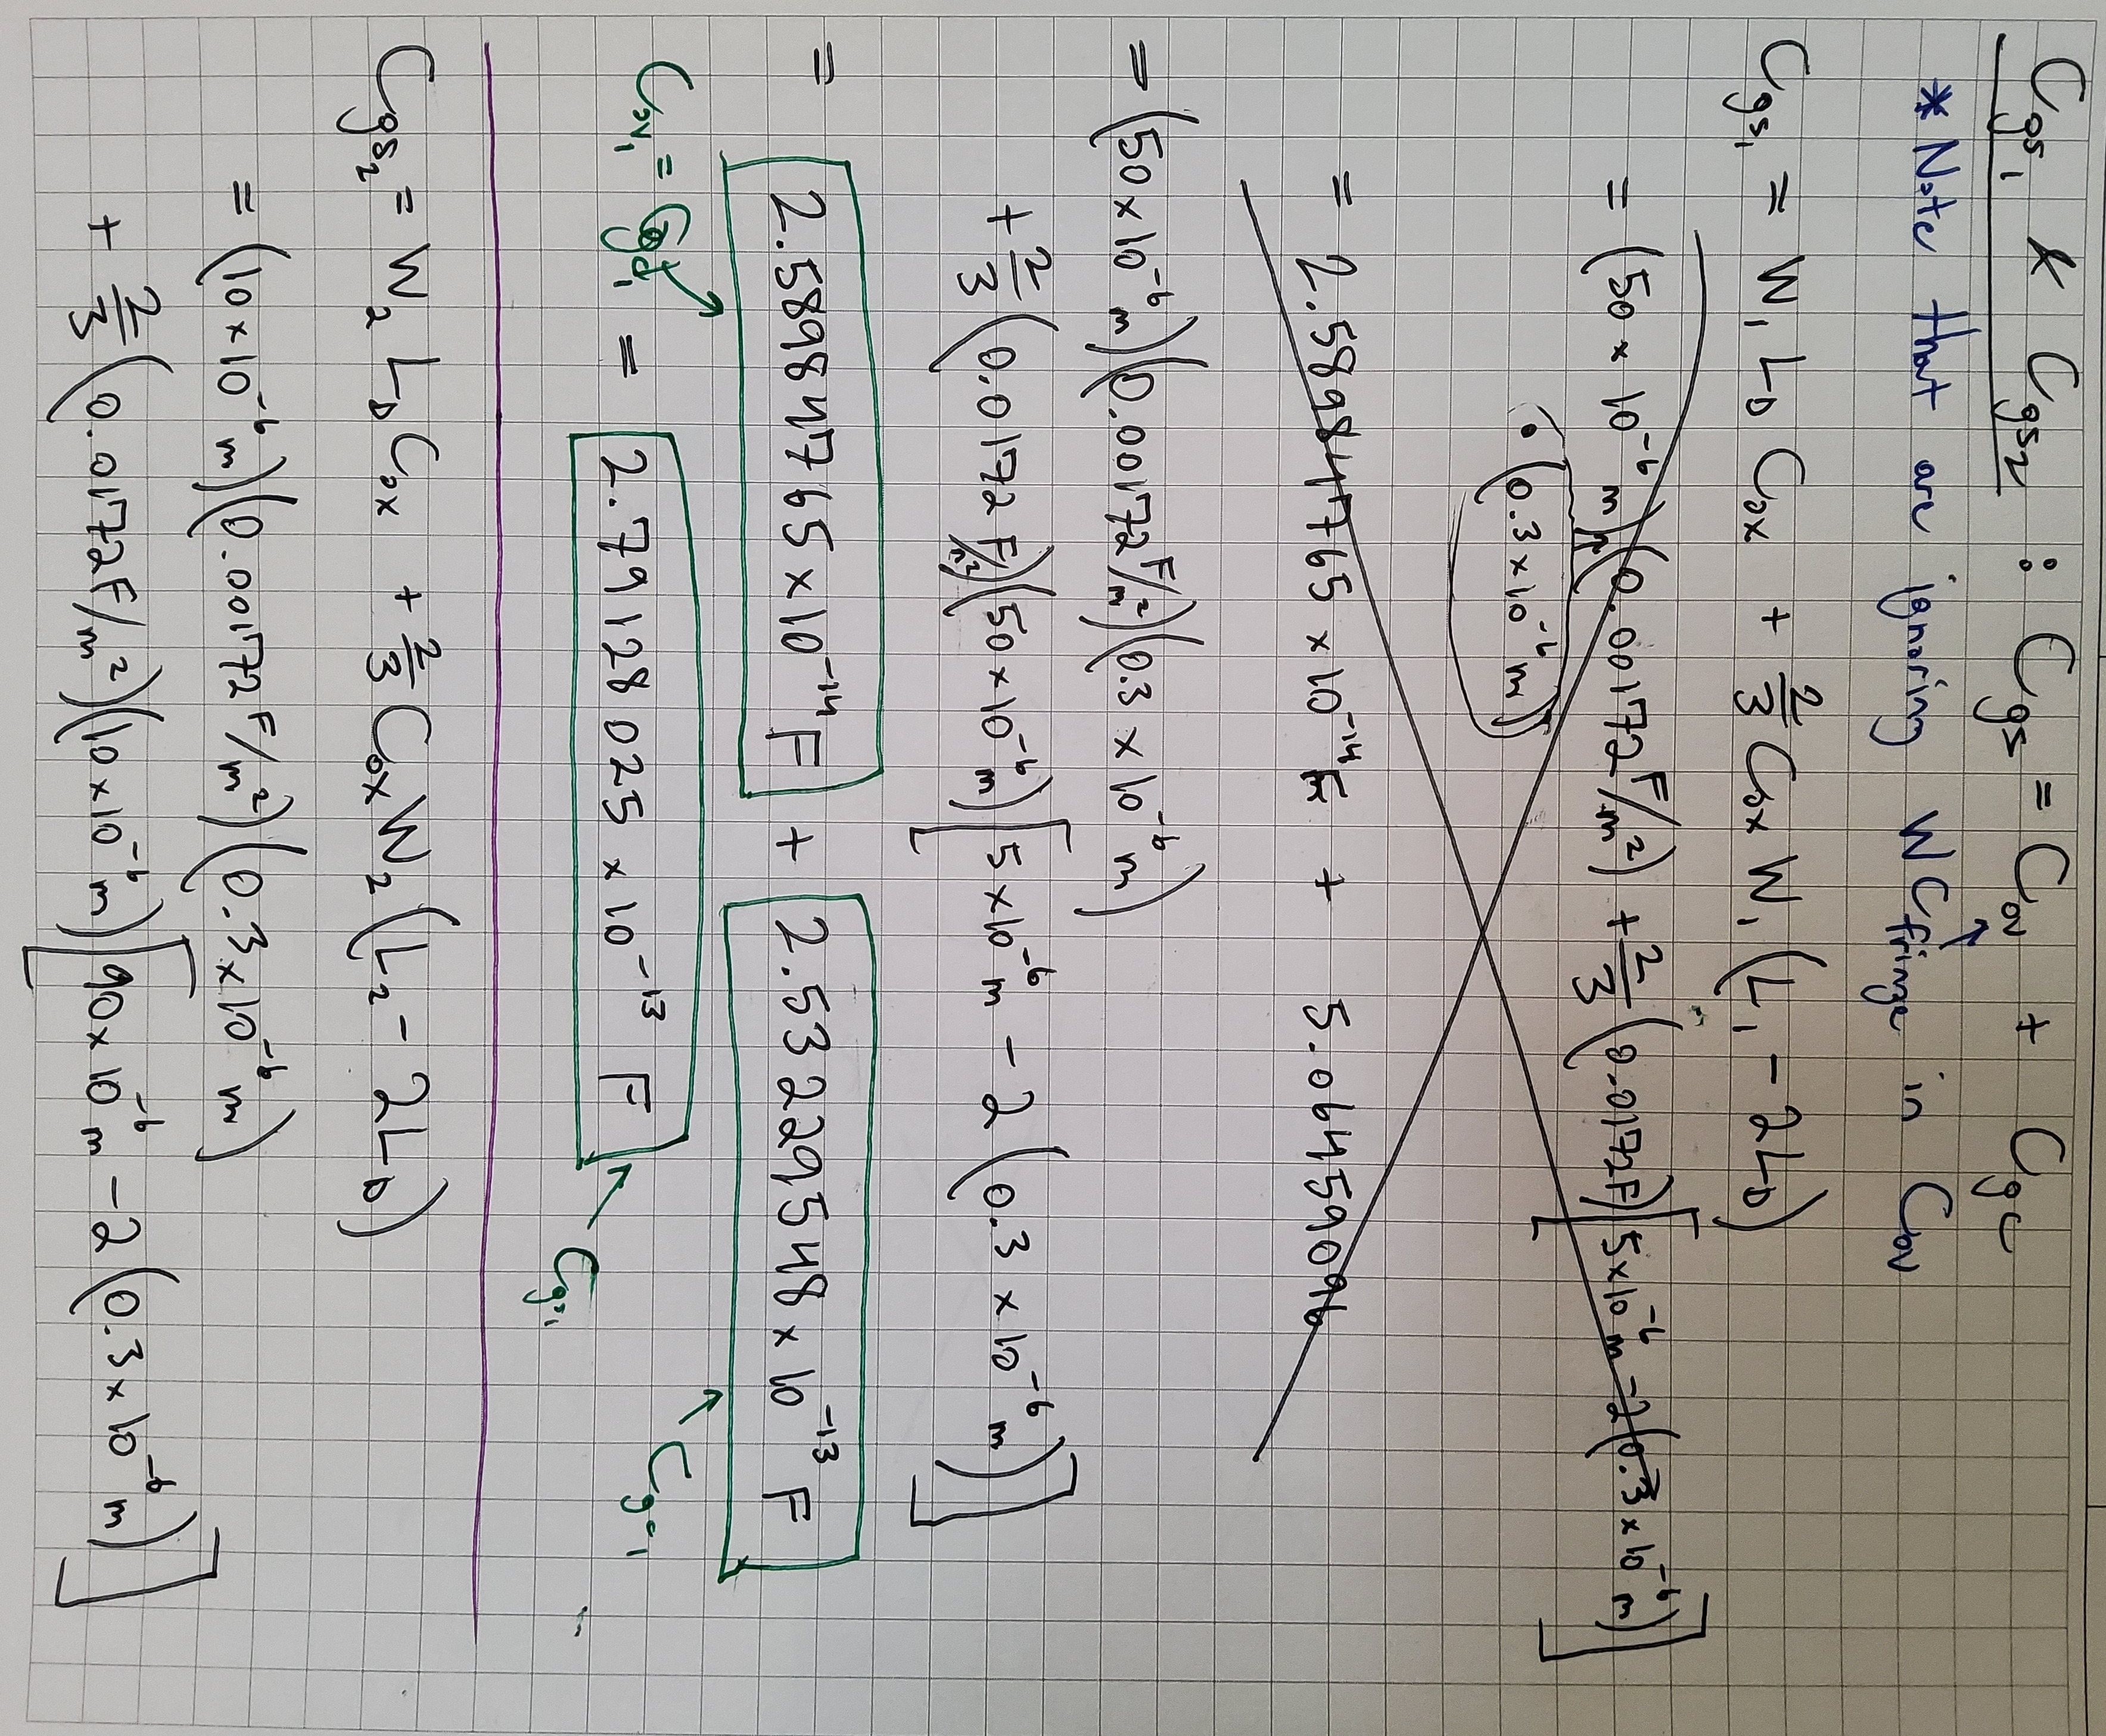 Cgs₁ & Cgs₂ : Cgs = Cov + Cgc
* Note that are ignoring WCfringe in Cov
Cgs₁ = W₁ L_D Cox + 2/3 Cox W₁ (L₁ - 2L_D)
= (50 × 10⁻⁶ m)(0.00172 F/m²) + 2/3 (0.0172F)[5×10⁻⁶ m - 2(0.3 × 10⁻⁶ m)]
• (0.3 × 10⁻⁶ m)
= 2.589847765 × 10⁻¹⁴ F + 5.06459096
= (50 × 10⁻⁶ m)(0.00172 F/m²)(0.3 × 10⁻⁶ m)
+ 2/3 (0.0172 F/m²)(50 × 10⁻⁶ m)[5 × 10⁻⁶ m - 2(0.3 × 10⁻⁶ m)]
= 2.589847765 × 10⁻¹⁴ F + 2.53229548 × 10⁻¹³ F
Cov₁ = Cgd₁
Cgc₁
= 2.79128025 × 10⁻¹³ F
Cgs₁
Cgs₂ = W₂ L_D Cox + 2/3 Cox W₂ (L₂ - 2L_D)
= (10 × 10⁻⁶ m)(0.00172 F/m²)(0.3 × 10⁻⁶ m)
+ 2/3 (0.0172 F/m²)(10 × 10⁻⁶ m)[90 × 10⁻⁶ m - 2(0.3 × 10⁻⁶ m)]